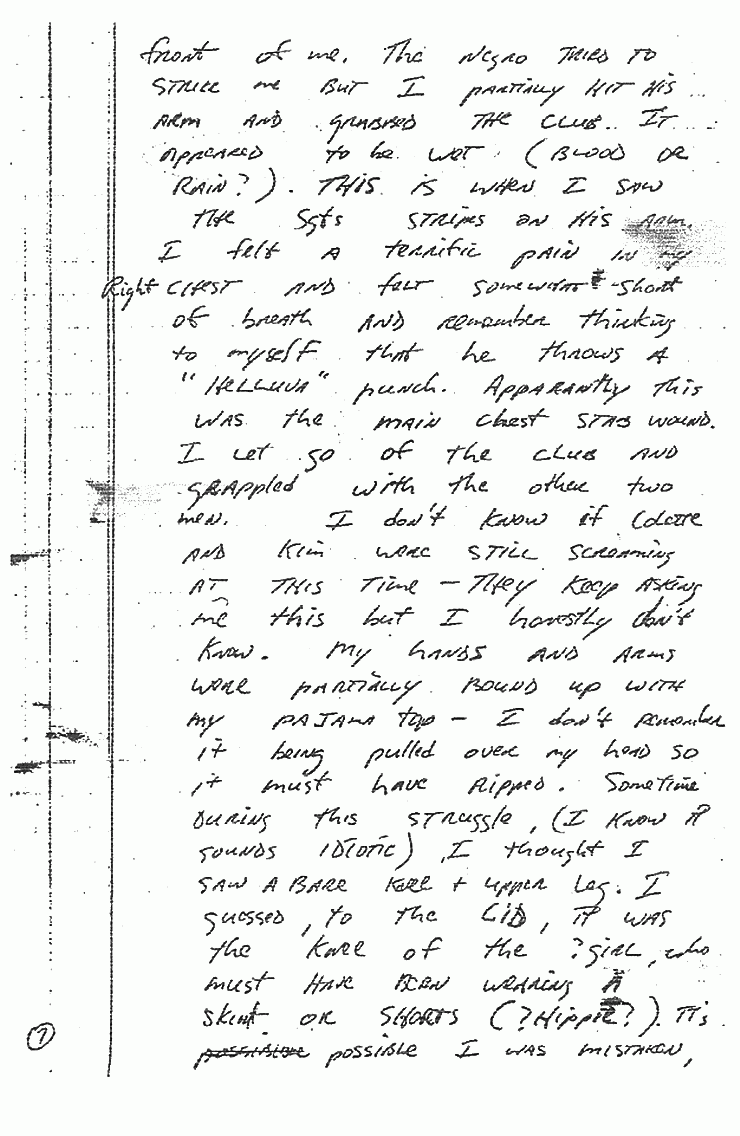 front of me. The Negro TRIED TO
STRIKE me BUT I PARTIALLY HIT HIS
ARM AND GRABBED THE CLUB. IT
APPEARED to be WET (BLOOD OR
RAIN?). THIS IS WHEN I SAW
THE Sgts STRIPES ON HIS ARM.
I felt A terrific PAIN IN my
Right CHEST AND FELT SOMEWHAT short
of breath AND remember thinking
to myself that he throws A
"HELLUVA" punch. APPARANTLY THIS
WAS the MAIN chest STAB WOUND.
I LET go of the CLUB AND
GRAPPled with the other two
men. I don't KNOW if Colette
AND KIM WERE STILL SCREAMING
AT THIS TIME - THEY KEEP ASKING
me this but I honestly don't
KNOW. MY HANDS AND ARMS
WERE PARTIALLY BOUND UP WITH
my PAJAMA top - I don't remember
it being pulled over my head so
it must have RIPPED. SomeTime
DURING this STRuggle, (I KNOW IT
SOUNDS IDIOTIC), I thought I
SAW A BARE KNEE + UPPER Leg. I
guessed, to the CID, IT WAS
the KNEE of the ?GIRL, who
must HAVE BEEN WEARING A
SKIRT OR SHORTS (?HIPPIE?). ITS
possible possible I WAS MISTAKEN,
7